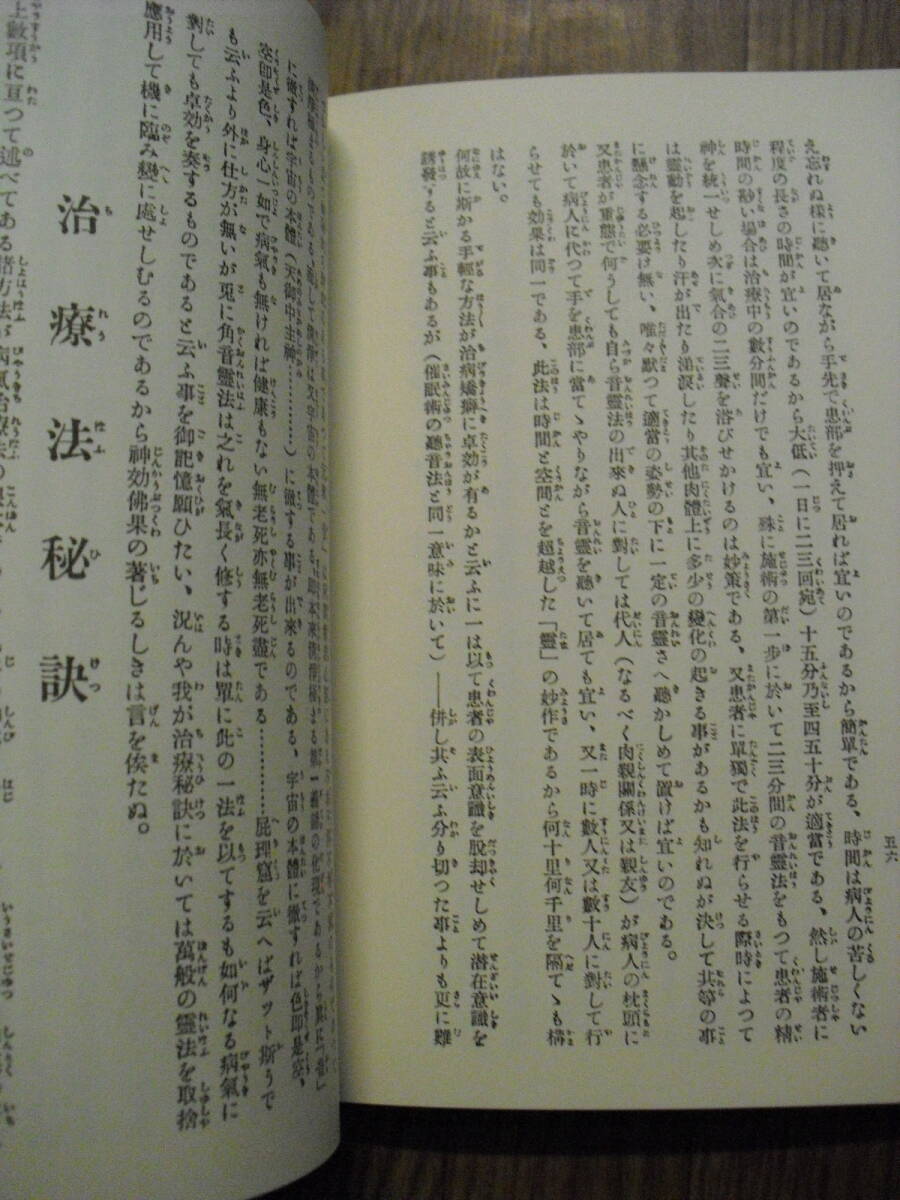 五六
え忘れぬ様に聽いて居ながら手先で患部を押えて居れば宜いのであるから簡單である、時間は病人の苦しくない
程度の長さの時間が宜いのであるから大低(一日に二三回宛)十五分乃至四五十分が適當である、然し施術者に
時間の尠い場合は治療中の數分間だけでも宜い、殊に施術の第一步に於いて二三分間の音靈法をもつて患者の精
神を統一せしめ次に氣合の二三聲を浴びせかけるのは妙策である、又患者に單獨で此法を行らせる際時によつて
は靈動を起したり汗が出たり涕淚したり其他肉體上に多少の變化の起きる事があるかも知れぬが決して其等の事
に懸念する必要は無い、唯々默つて適當の姿勢の下に一定の音靈さへ聽かしめて置けば宜いのである。
又患者が重態で何うしても自ら音靈法の出來ぬ人に對しては代人(なるべく肉親關係又は親友)が病人の枕頭に
於いて病人に代つて手を患部に當てゝやりながら音靈を聽いて居ても宜い、又一時に數人又は數十人に對して行
らせても効果は同一である、此法は時間と空間とを超越した「靈」の妙作であるから何十里何千里を隔てゝも構
はない。
何故に斯かる手輕な方法が治病矯癖に卓効が有るかと云ふに一は以て患者の表面意識を脫却せしめて潜在意識を
誘發すると云ふ事もあるが(催眠術の聽音法と同一意味に於いて)――併し其ふ云ふ分り切つた事よりも更に難
に徹すれば宇宙の本體(天御中主神…………)に徹する事が出來るのである、宇宙の本體に徹すれば色即是空、
空即是色、身心一如で病氣も無ければ健康もない無老死亦無老死盡である…………屁理窟を云へばザット斯うで
も云ふより外に仕方が無いが兎に角音靈法は之れを氣長く修する時は單に此の一法を以てするも如何なる病氣に
對しても卓効を奏するものであると云ふ事を御記憶願ひたい、況んや我が治療秘訣に於いては萬般の靈法を取捨
應用して機に臨み變に處せしむるのであるから神効佛果の著じるしきは言を俟たぬ。
治療法秘訣
上數項に亘つて述べてある諸方法が病氣治療法の